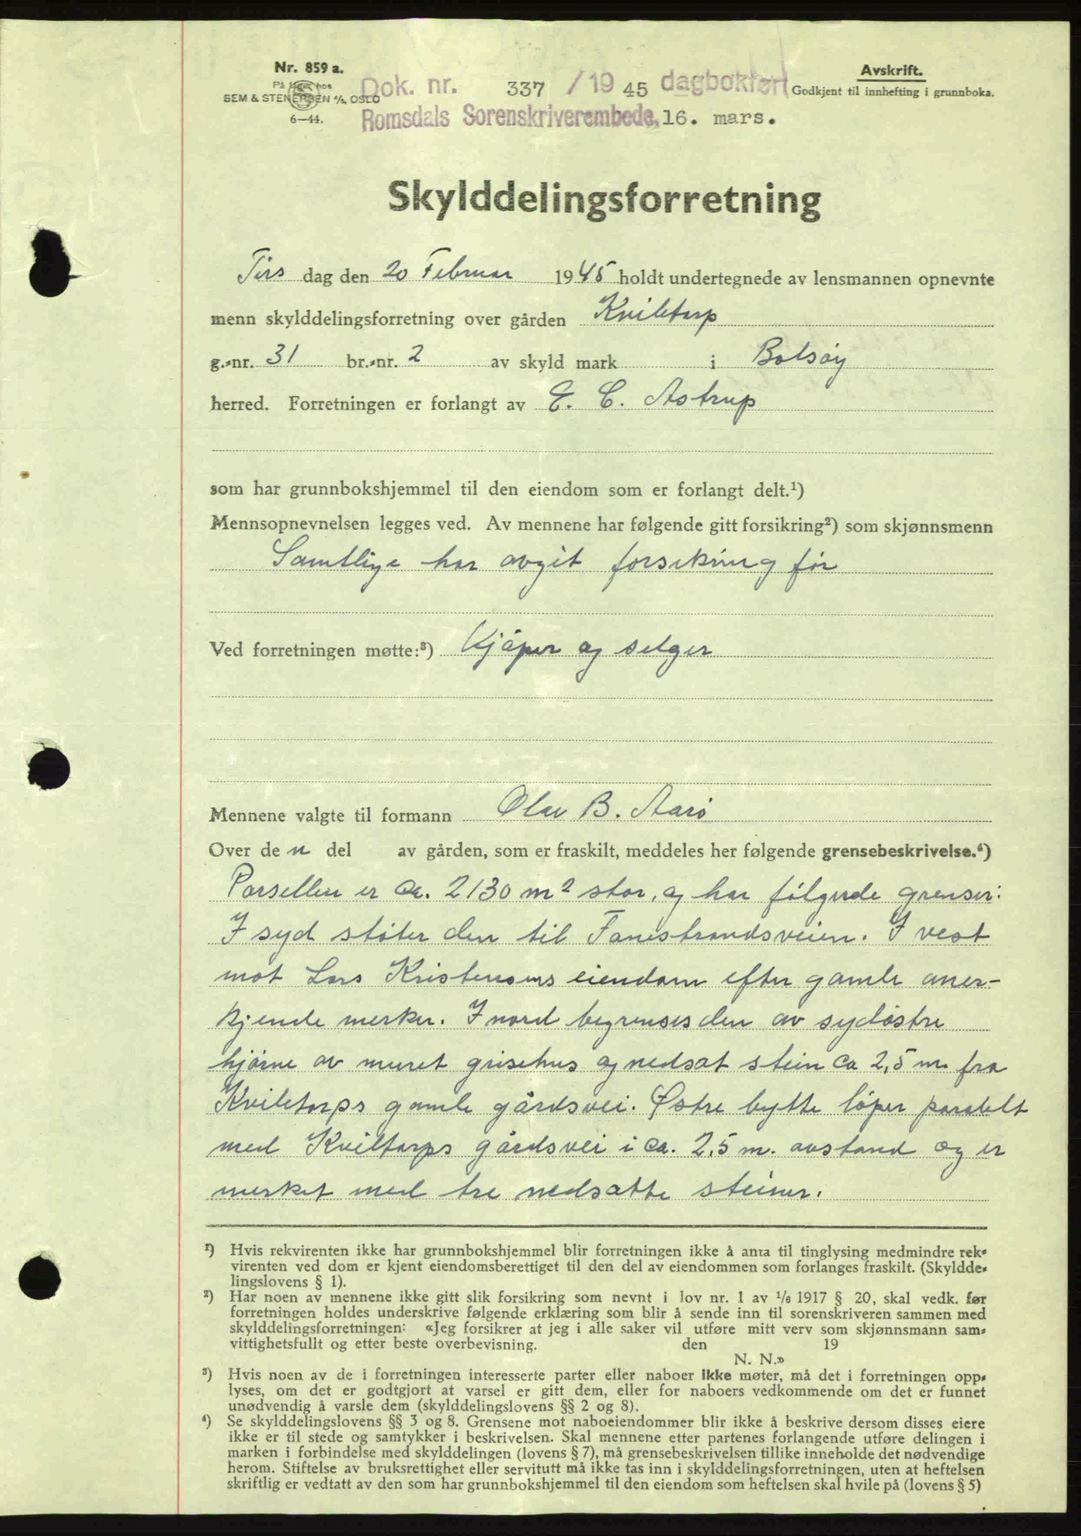 Nr. 859 a.
På lager hos
SEM & STENERSEN A/S, OSLO
6—44.
Dok. nr. 337 / 19 45 dagbokført
Romsdals Sorenskriverembede, 16. mars.
Avskrift.
Godkjent til innhefting i grunnboka.
Skylddelingsforretning
Tirs dag den 20 Februar 1945 holdt undertegnede av lensmannen opnevnte
menn skylddelingsforretning over gården Kviltorp
g.-nr. 31 br.-nr. 2 av skyld mark i Bolsøy
herred. Forretningen er forlangt av E. C. Astrup
som har grunnbokshjemmel til den eiendom som er forlangt delt.¹)
Mennsopnevnelsen legges ved. Av mennene har følgende gitt forsikring²) som skjønnsmenn
Samtlige har avgit forsikring før
Ved forretningen møtte:³) Kjøper og selger
Mennene valgte til formann Olav B. Aarø
Over de n del av gården, som er fraskilt, meddeles her følgende grensebeskrivelse.⁴)
Parsellen er ca. 2130 m² stor, og har følgende grenser:
I syd støter den til Fanestrandsveien. I vest
mot Lars Kristensens eiendom efter gamle aner-
kjende merker. I nord begrenses den av sydøstre
hjørne av muret grisehus og nedsat stein ca 2,5 m. fra
Kviltorps gamle gårdsvei. Østre bytte løper paralelt
med Kviltorps gårdsvei i ca. 2,5 m. avstand og er
merket med tre nedsatte steiner.
¹) Hvis rekvirenten ikke har grunnbokshjemmel blir forretningen ikke å anta til tinglysing medmindre rek-
virenten ved dom er kjent eiendomsberettiget til den del av eiendommen som forlanges fraskilt. (Skyldde-
lingslovens § 1).
²) Har noen av mennene ikke gitt slik forsikring som nevnt i lov nr. 1 av 1/6 1917 § 20, skal vedk. før
forretningen holdes underskrive følgende erklæring som blir å sende inn til sorenskriveren sammen med
skylddelingsforretningen: «Jeg forsikrer at jeg i alle saker vil utføre mitt verv som skjønnsmann sam-
vittighetsfullt og etter beste overbevisning. den 19
N. N.»
³) Hvis noen av de i forretningen interesserte parter eller naboer ikke møter, må det i forretningen opp-
lyses, om det er godtgjort at varsel er gitt dem, eller for naboers vedkommende om det er funnet
unødvendig å varsle dem (skylddelingslovens §§ 2 og 8).
⁴) Se skylddelingslovens §§ 3 og 8. Grensene mot naboeiendommer blir ikke å beskrive dersom disses eiere
ikke er til stede og samtykker i beskrivelsen. Skal mennene etter partenes forlangende utføre delingen i
marken i forbindelse med skylddelingen (lovens § 7), må grensebeskrivelsen tillike inneholde det nødvendige
herom. Stiftelse av bruksrettighet eller servitutt må ikke tas inn i skylddelingsforretningen, uten at heftelsen
skriftlig er vedtatt av den som har grunnbokshjemmel til den eiendom som heftelsen skal hvile på (lovens § 5)